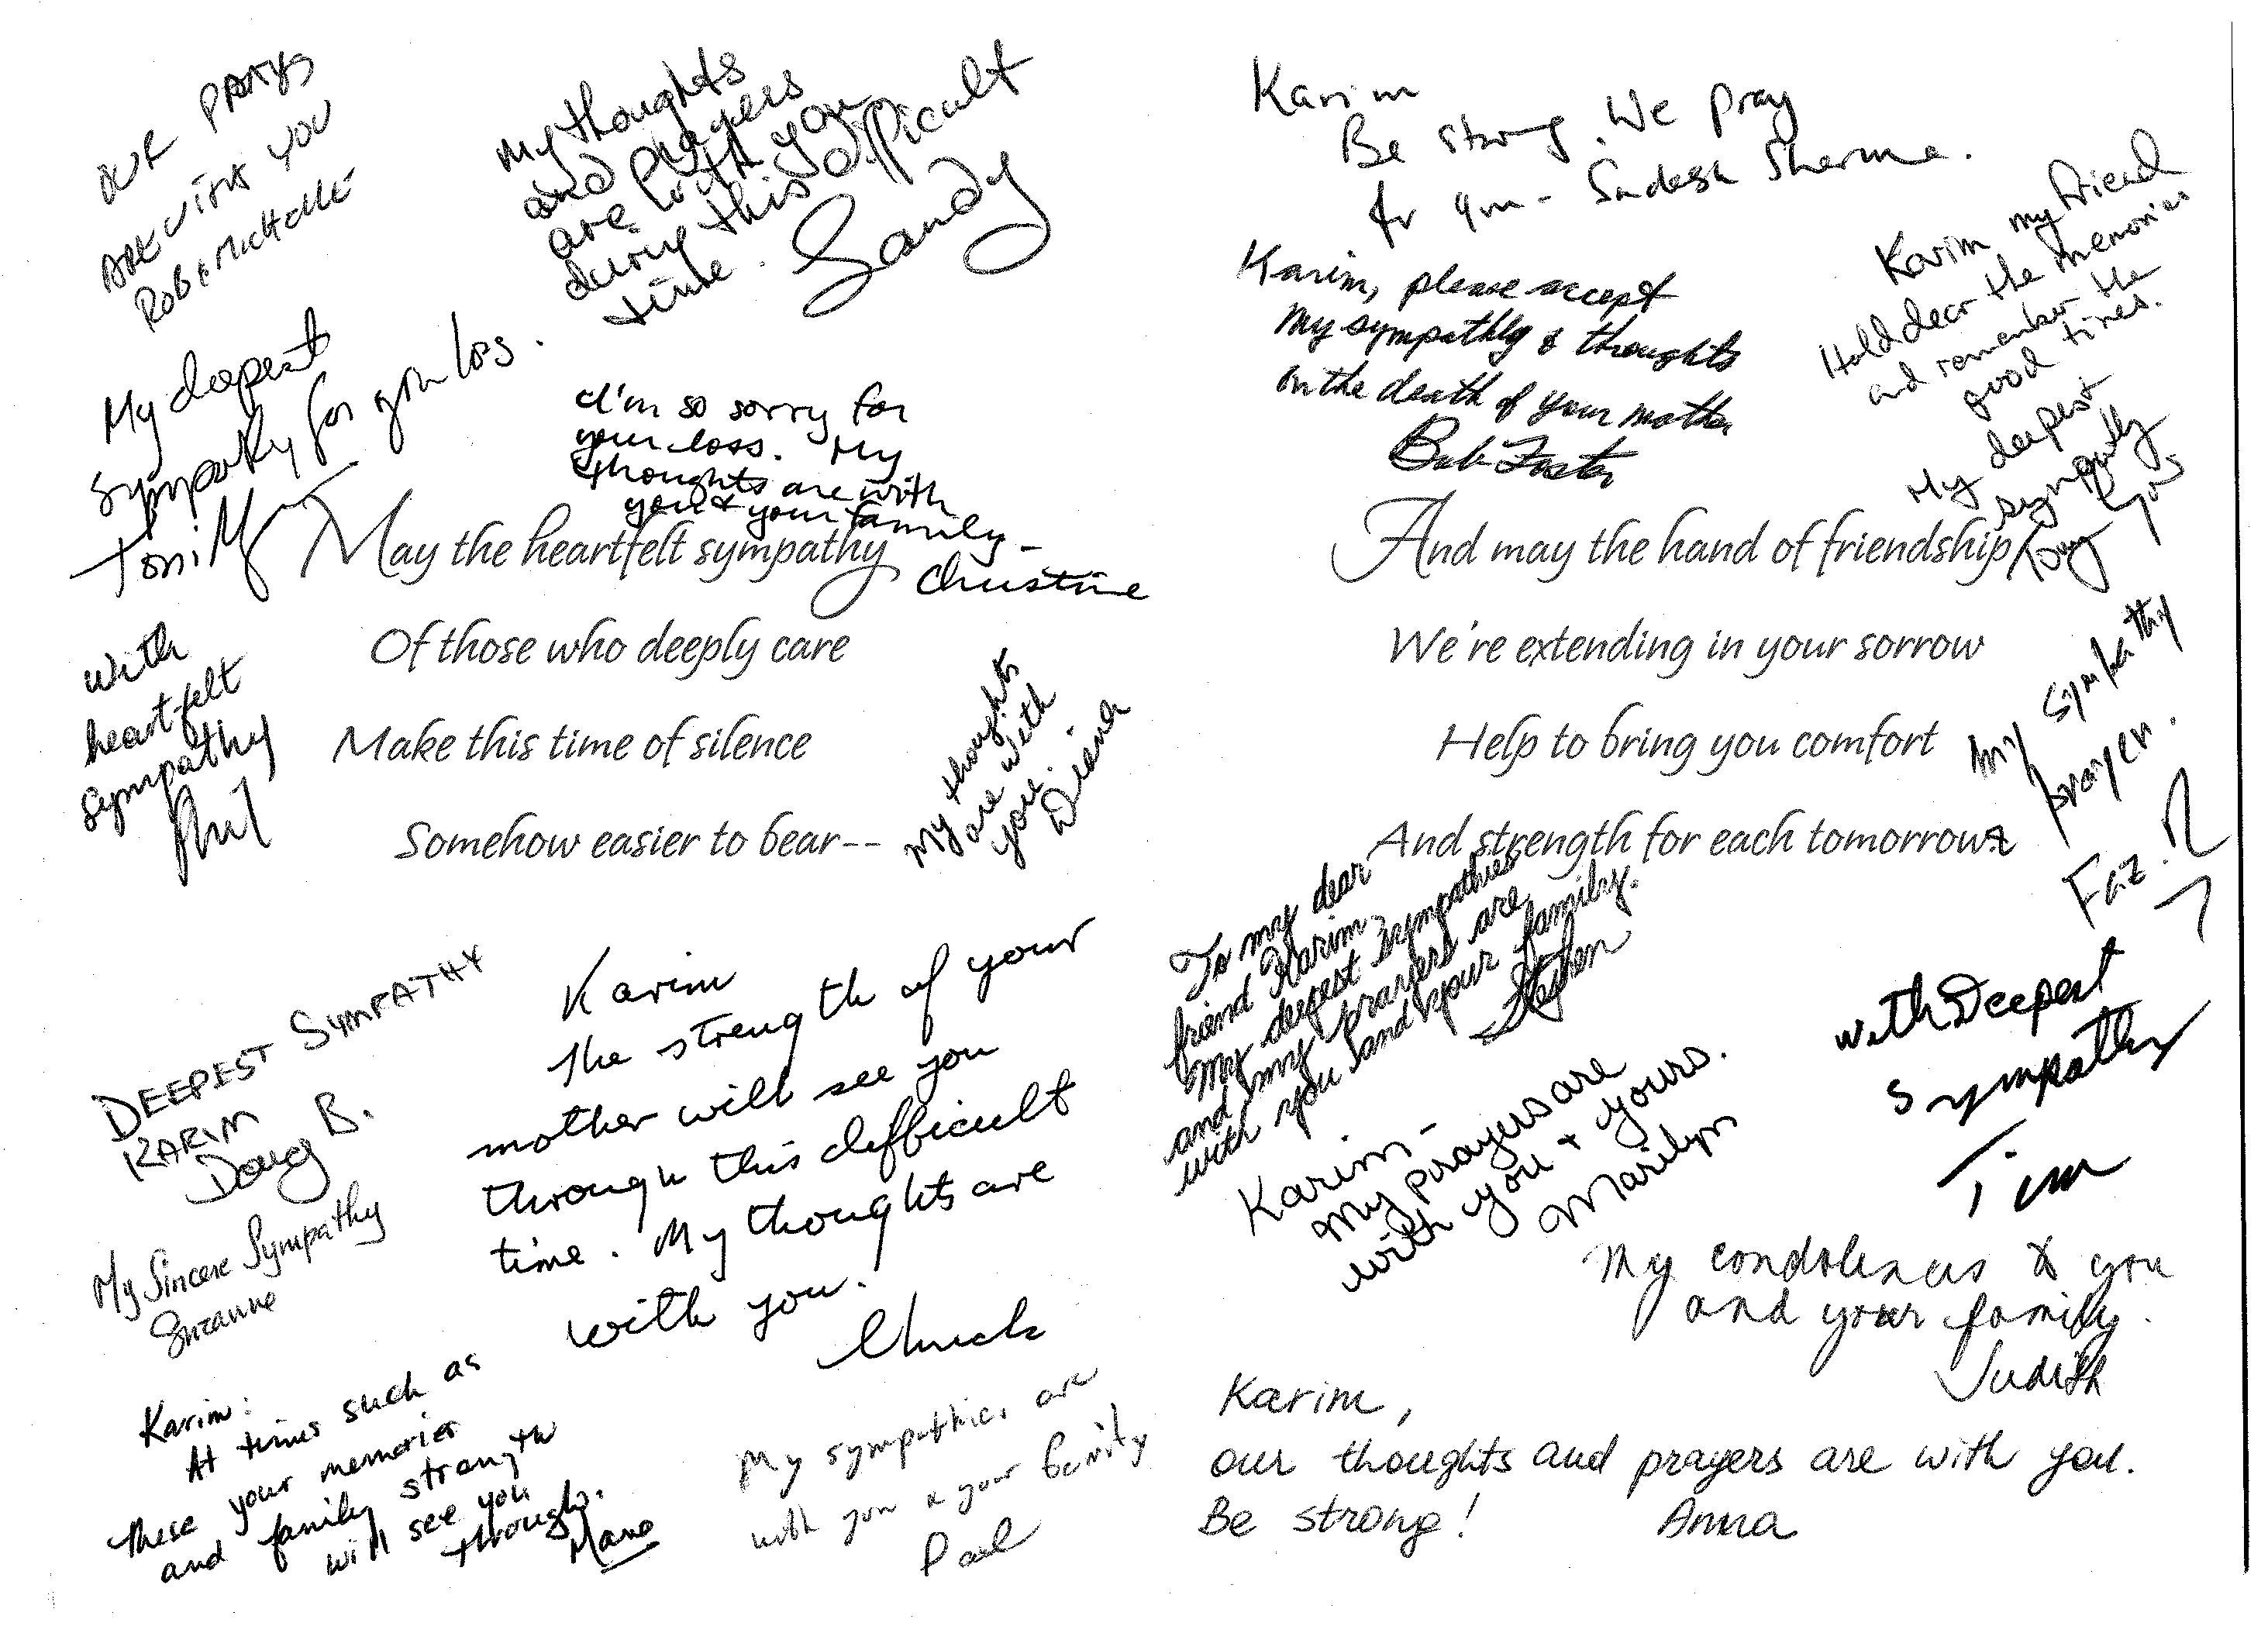 OUR PRAYS
ARE WITH YOU
ROB & MICHELLE
My thoughts
and prayers
are with you
during this difficult
time. Sandy
My deepest
sympathy for your loss.
Toni
I'm so sorry for
your loss. My
thoughts are with
you & your family -
Christine
May the heartfelt sympathy
Of those who deeply care
Make this time of silence
Somehow easier to bear--
With
heart-felt
sympathy
Phil
My thoughts
are with
you.
Diana
DEEPEST SYMPATHY
KARIM
Doug B.
My Sincere Sympathy
Suzanne
Karim
The strength of your
mother will see you
through this difficult
time. My thoughts are
with you.
Chuck
Karim:
At times such as
these your memories
and family strength
will see you
through.
My sympathies are
with you & your family
Paul
Karim
Be strong. We pray
for you - Sudesh Sharma.
Karim, please accept
my sympathy & thoughts
on the death of your mother
Bob Foster
Karim my friend
Hold dear the memories
and remember the
good times.
My deepest
sympathy
Tony
And may the hand of friendship
We're extending in your sorrow
Help to bring you comfort
And strength for each tomorrow
My sympathy
prayer.
Faz.
To my dear
friend Karim,
My deepest sympathies
and my prayers are
with you and your family.
Stephen
Karim -
My prayers are
with you & yours.
Marilyn
With Deepest
Sympathy
Tim
My condolences to you
and your family.
Judith
Karim,
our thoughts and prayers are with you.
Be strong! Anna